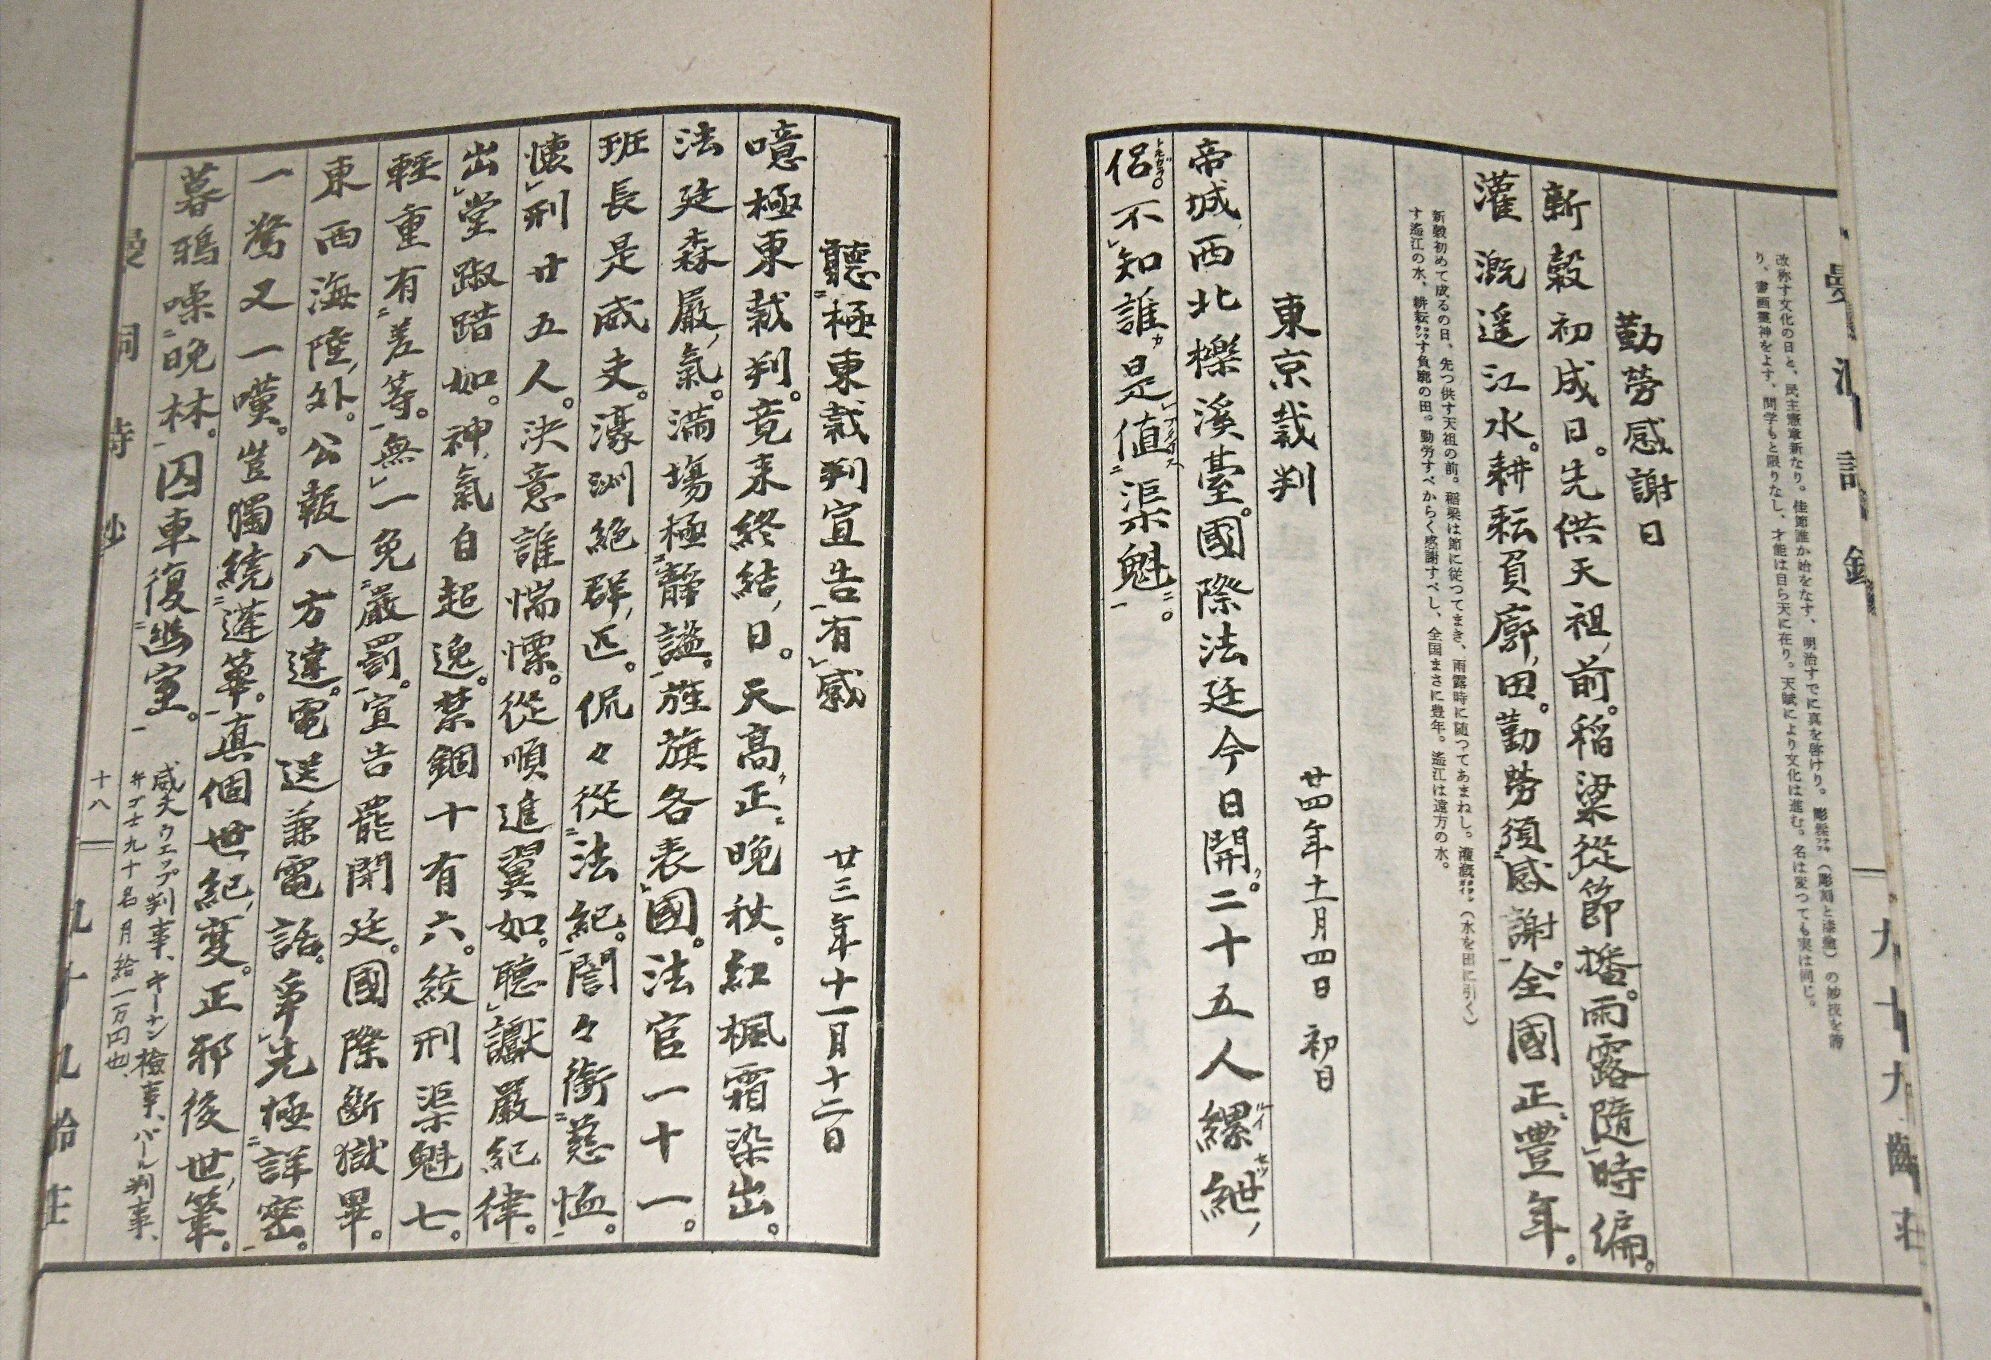 改称す文化の日と、民主憲章新なり。佳節誰か始をなす、明治すでに真を啓けり。彫
り、書画霊神をよす、問学もと限りなし、才能は自ら天に在り。天賦により文化は進む。名は変つても実は同じ。
勤勞感謝日
新穀初成日。先供天祖ノ前。稲粱從節播。雨露隨時編。
灌漑遥江水。耕耘負廓ノ田。勤勞須感謝。全國正豐年。
新穀初めて成るの日、先つ供す天祖の前。稲粱は節に従つてまき、雨露時に随つてあまねし。灌漑(水を田に引く)
す遥江の水、耕耘す負廓の田。勤労すべからく感謝すべし、全国まさに豊年。遥江は遠方の水。
東京裁判 廿四年十一月四日 初日
帝城ノ西北櫟溪臺。國際法廷今日開ク。二十五人縲紲ノ
侶。不知誰カ是値渠魁。
聽極東裁判宣告有感 廿三年十一月十二日
噫極東裁判。竟来終結ノ日。天高正晩秋。紅楓霜染出。
法廷森嚴ノ氣。満場極靜謐。旌旗各表國。法官一十一。
班長是咸夫。濠洲絶群ノ匹。侃々從法紀。誾々銜慈恤。
懐刑廿五人。決意誰惴慄。從順進翼如。聽讞嚴紀律。
出堂踧踖如。神氣自超逸。禁錮十有六。絞刑渠魁七。
輕重有差等。無一免嚴罰。宣告罷閉廷。國際断獄畢。
東西海陸ノ外。公報八方達。電送兼電話。爭先極詳密。
一驚又一嘆。豈獨繞蓮華。真個世紀ノ変。正邪後世ノ筆。
暮鴉噪晩林。囚車復幽室。
咸夫ウエップ判事、キーナン検事、パール判事、
弁ゴ士九十名月給一万円也、
十八